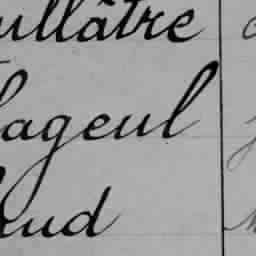 ullâtre
lageul
aud